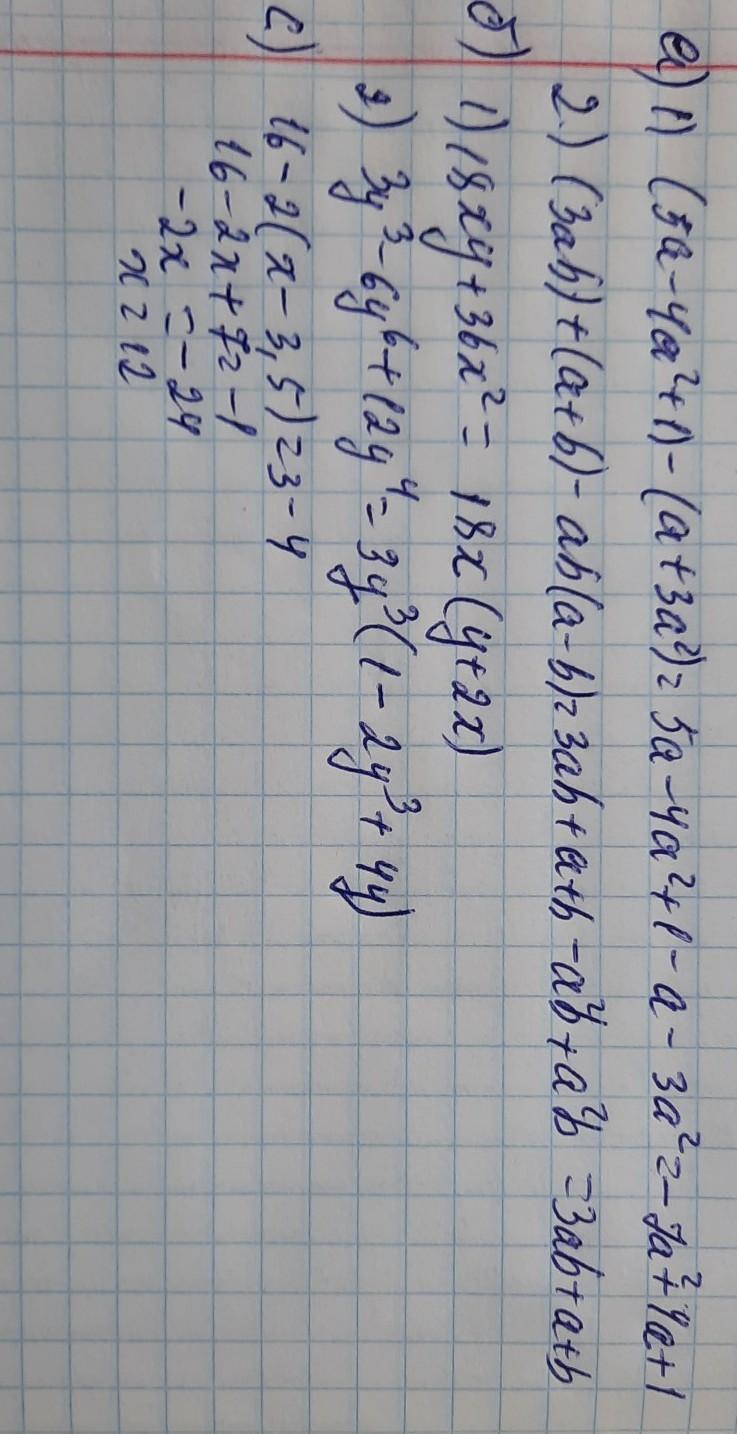 а) 1) (5a-4a²+1)-(a+3a²)=5a-4a²+1-a-3a²=-7a²+4a+1
2.) (3ab)+(a+b)-ab(a-b)=3ab+a+b-a²b+a²b=3ab+a+b
б) 1) 18xy+36x²=18x(y+2x)
2) 3y³-6y⁶+12y⁴=3y³(1-2y³+4y)
с) 16-2(x-3,5)=3-4
16-2x+7=-1
-2x=-24
x=12